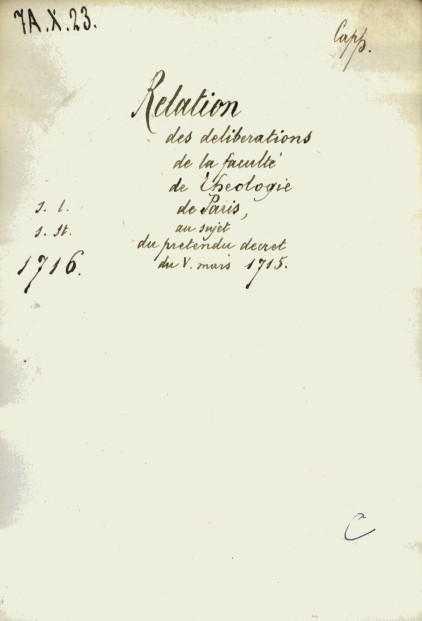 7A.X.23.
Capss.
Relation
des deliberations
de la faculté
de Theologie
s. l. de Paris,
s. St. au sujet
du pretendu decret
1716. du V. mars 1715.
C